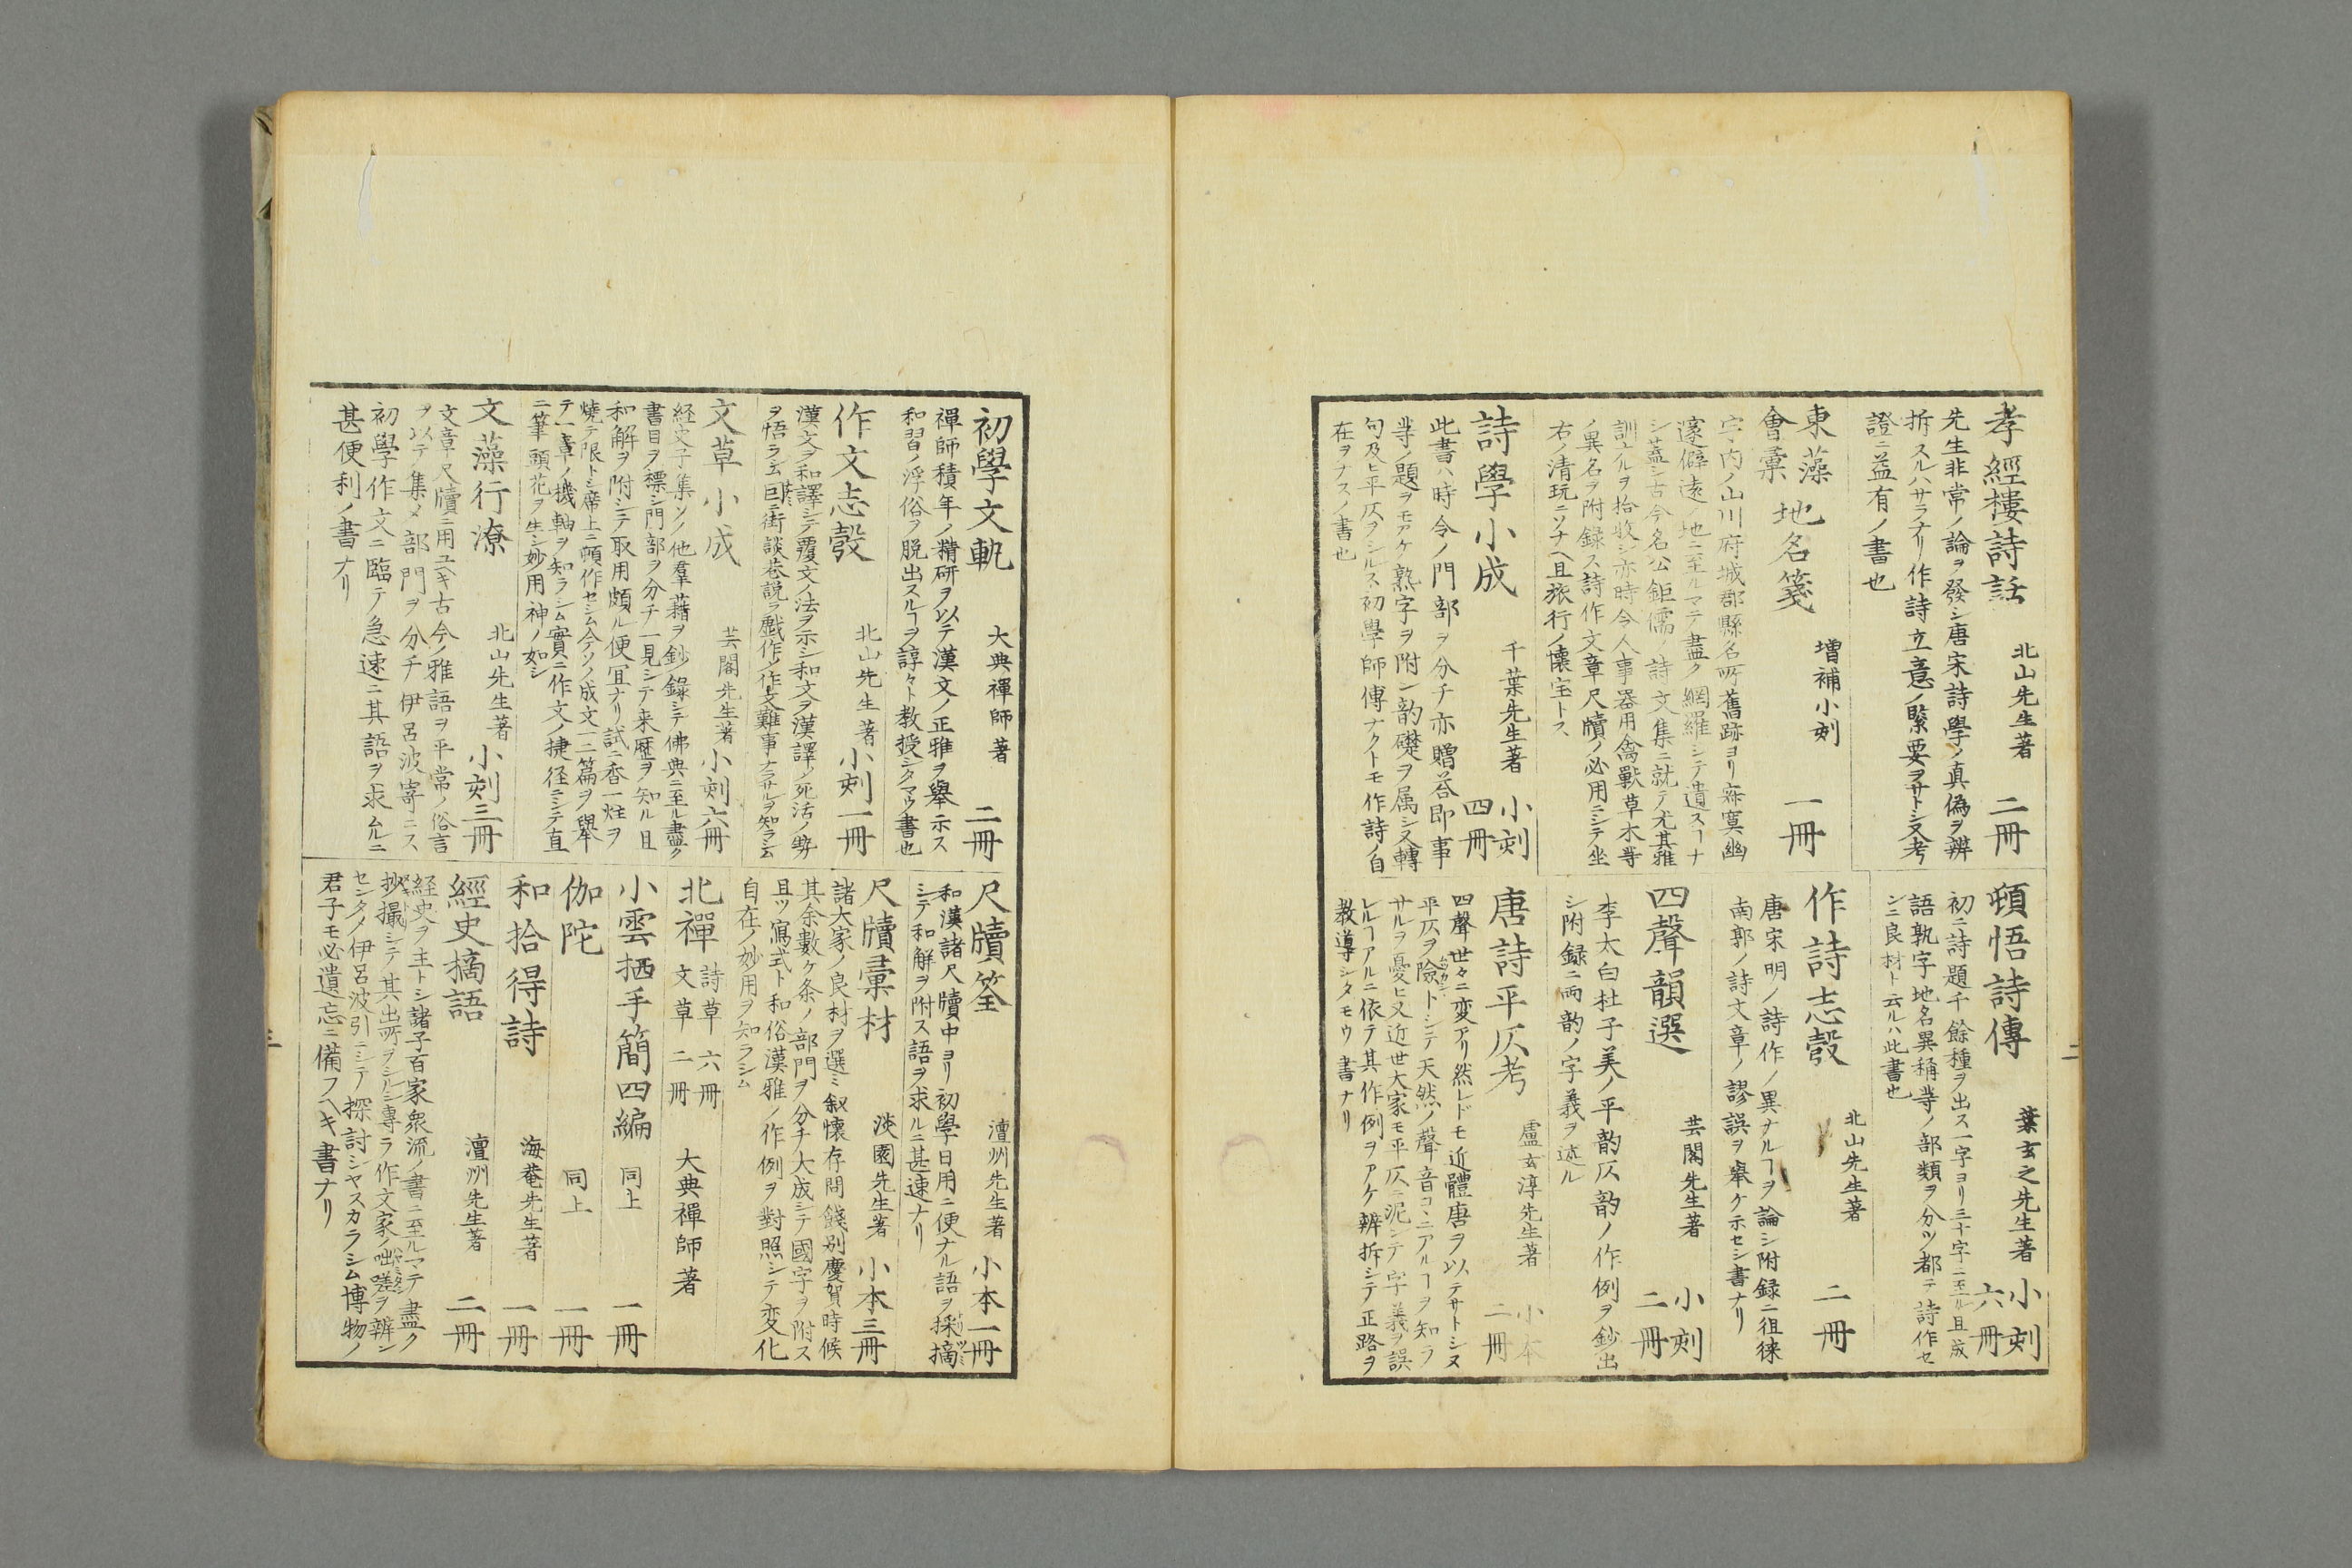 孝經樓詩話 北山先生著 二冊
先生非常ノ論ヲ發シ唐宋詩學ノ真偽ヲ辨
拆スルハサラナリ作詩立意ノ緊要ヲサトシ又考
證ニ益有ノ書也
東藻會彙 地名箋 増補小刻 一冊
宇内ノ山川府城郡縣名所舊跡ヨリ寂寞幽
邃僻遠ノ地ニ至ルマテ盡ク網羅シテ遺スヿナ
シ蓋シ古今名公鉅儒ノ詩文集ニ就テ尤其雅
訓ナルヲ拾收シ亦時令人事器用禽獸草木等
ノ異名ヲ附録ス詩作文章尺牘ノ必用ニシテ坐
右ノ清玩ニソナヘ且旅行ノ懐宝トス
詩學小成 千葉先生著 小刻四冊
此書ハ時令ノ門部ヲ分チ亦贈荅即事
等ノ題ヲモアケ熟字ヲ附シ韵礎ヲ属シ又轉
句及ヒ平仄ヲシルス初學師傳ナクトモ作詩ノ自
在ヲナスノ書也
頓悟詩傳 葉玄之先生著 小刻六冊
初ニ詩題千餘種ヲ出ス一字ヨリ三十字ニ至ル且成
語孰字地名異稱等ノ部類ヲ分ツ都テ詩作セ
ンニ良材ト云ルハ此書也
作詩志彀 北山先生著 二冊
唐宋明ノ詩作ノ異ナルヿヲ論シ附録ニ徂徠
南郭ノ詩文章ノ謬誤ヲ擧ケ示セシ書ナリ
四聲韻選 芸閣先生著 小刻二冊
李太白杜子美ノ平韵仄韵ノ作例ヲ鈔出
シ附録ニ両韵ノ字義ヲ述ル
唐詩平仄考 盧玄淳先生著 小本二冊
四聲世々ニ変アリ然レドモ近體唐ヲ以テサトシヌ
平仄ヲ險トシテ天然ノ聲音コヽニアルヿヲ知ラ
サルヲ憂ヒ又近世大家モ平仄ニ泥シテ字義ヲ誤
レルヿアルニ依テ其作例ヲアケ辨拆シテ正路ヲ
教導シタモウ書ナリ
二
初學文軌 大典禪師著 二冊
禪師積年ノ精研ヲ以テ漢文ノ正雅ヲ擧示ス
和習ノ浮俗ヲ脱出スルヿヲ諄々ト教授シタマウ書也
作文志彀 北山先生著 小刻一冊
漢文ヲ和譯シテ覆文ノ法ヲ示シ和文ヲ漢譯ノ死活ノ勢
ヲ悟ラシム且街談巷説ヲ戲作ノ作文難事ナラサルヲ知ラシム
文草小成 芸閣先生著 小刻六冊
経史子集ソノ他羣藉ヲ鈔録シテ佛典ニ至ル盡ク
書目ヲ標シ門部ヲ分チ一見シテ来歴ヲ知ル且
和解ヲ附シテ取用頗ル便宜ナリ試ニ香一炷ヲ
燒テ限トシ席上ニ頓作セシム今ソノ成文一二篇ヲ擧
テ一章ノ機軸ヲ知ラシム實ニ作文ノ捷径ニシテ直
ニ筆頭花ヲ生シ妙用神ノ如シ
文藻行潦 北山先生著 小刻三冊
文章尺牘ニ用ユヘキ古今ノ雅語ヲ平常ノ俗言
ヲ以テ集メ部門ヲ分チ伊呂波寄ニス
初學作文ニ臨テ急速ニ其語ヲ求ムルニ
甚便利ノ書ナリ
尺牘筌 澶州先生著 小本一冊
和漢諸尺牘中ヨリ初學日用ニ便ナル語ヲ採摘
シテ和解ヲ附ス語ヲ求ルニ甚速ナリ
尺牘彙材 淡園先生著 小本三冊
諸大家ノ良材ヲ選ミ叙懐存問餞別慶賀時候
其余數ケ条ノ部門ヲ分チ大成シテ國字ヲ附ス
且ツ寫式ト和俗漢雅ノ作例ヲ對照シテ変化
自在ノ妙用ヲ知ラシム
北禪 詩草六冊 文草二冊 大典禪師著
小雲栖手簡四編 同上 一冊
伽陀 同上 一冊
和拾得詩 海菴先生著 一冊
經史摘語 澶州先生著 二冊
経史ヲ主トシ諸子百家衆流ノ書ニ至ルマテ盡ク
抄撮シテ其出所ヲシルシ專ラ作文家ノ咄嗟ヲ辨シ
センタメ伊呂波引ニシテ探討シヤスカラシム博物ノ
君子モ必遺忘ニ備フヘキ書ナリ